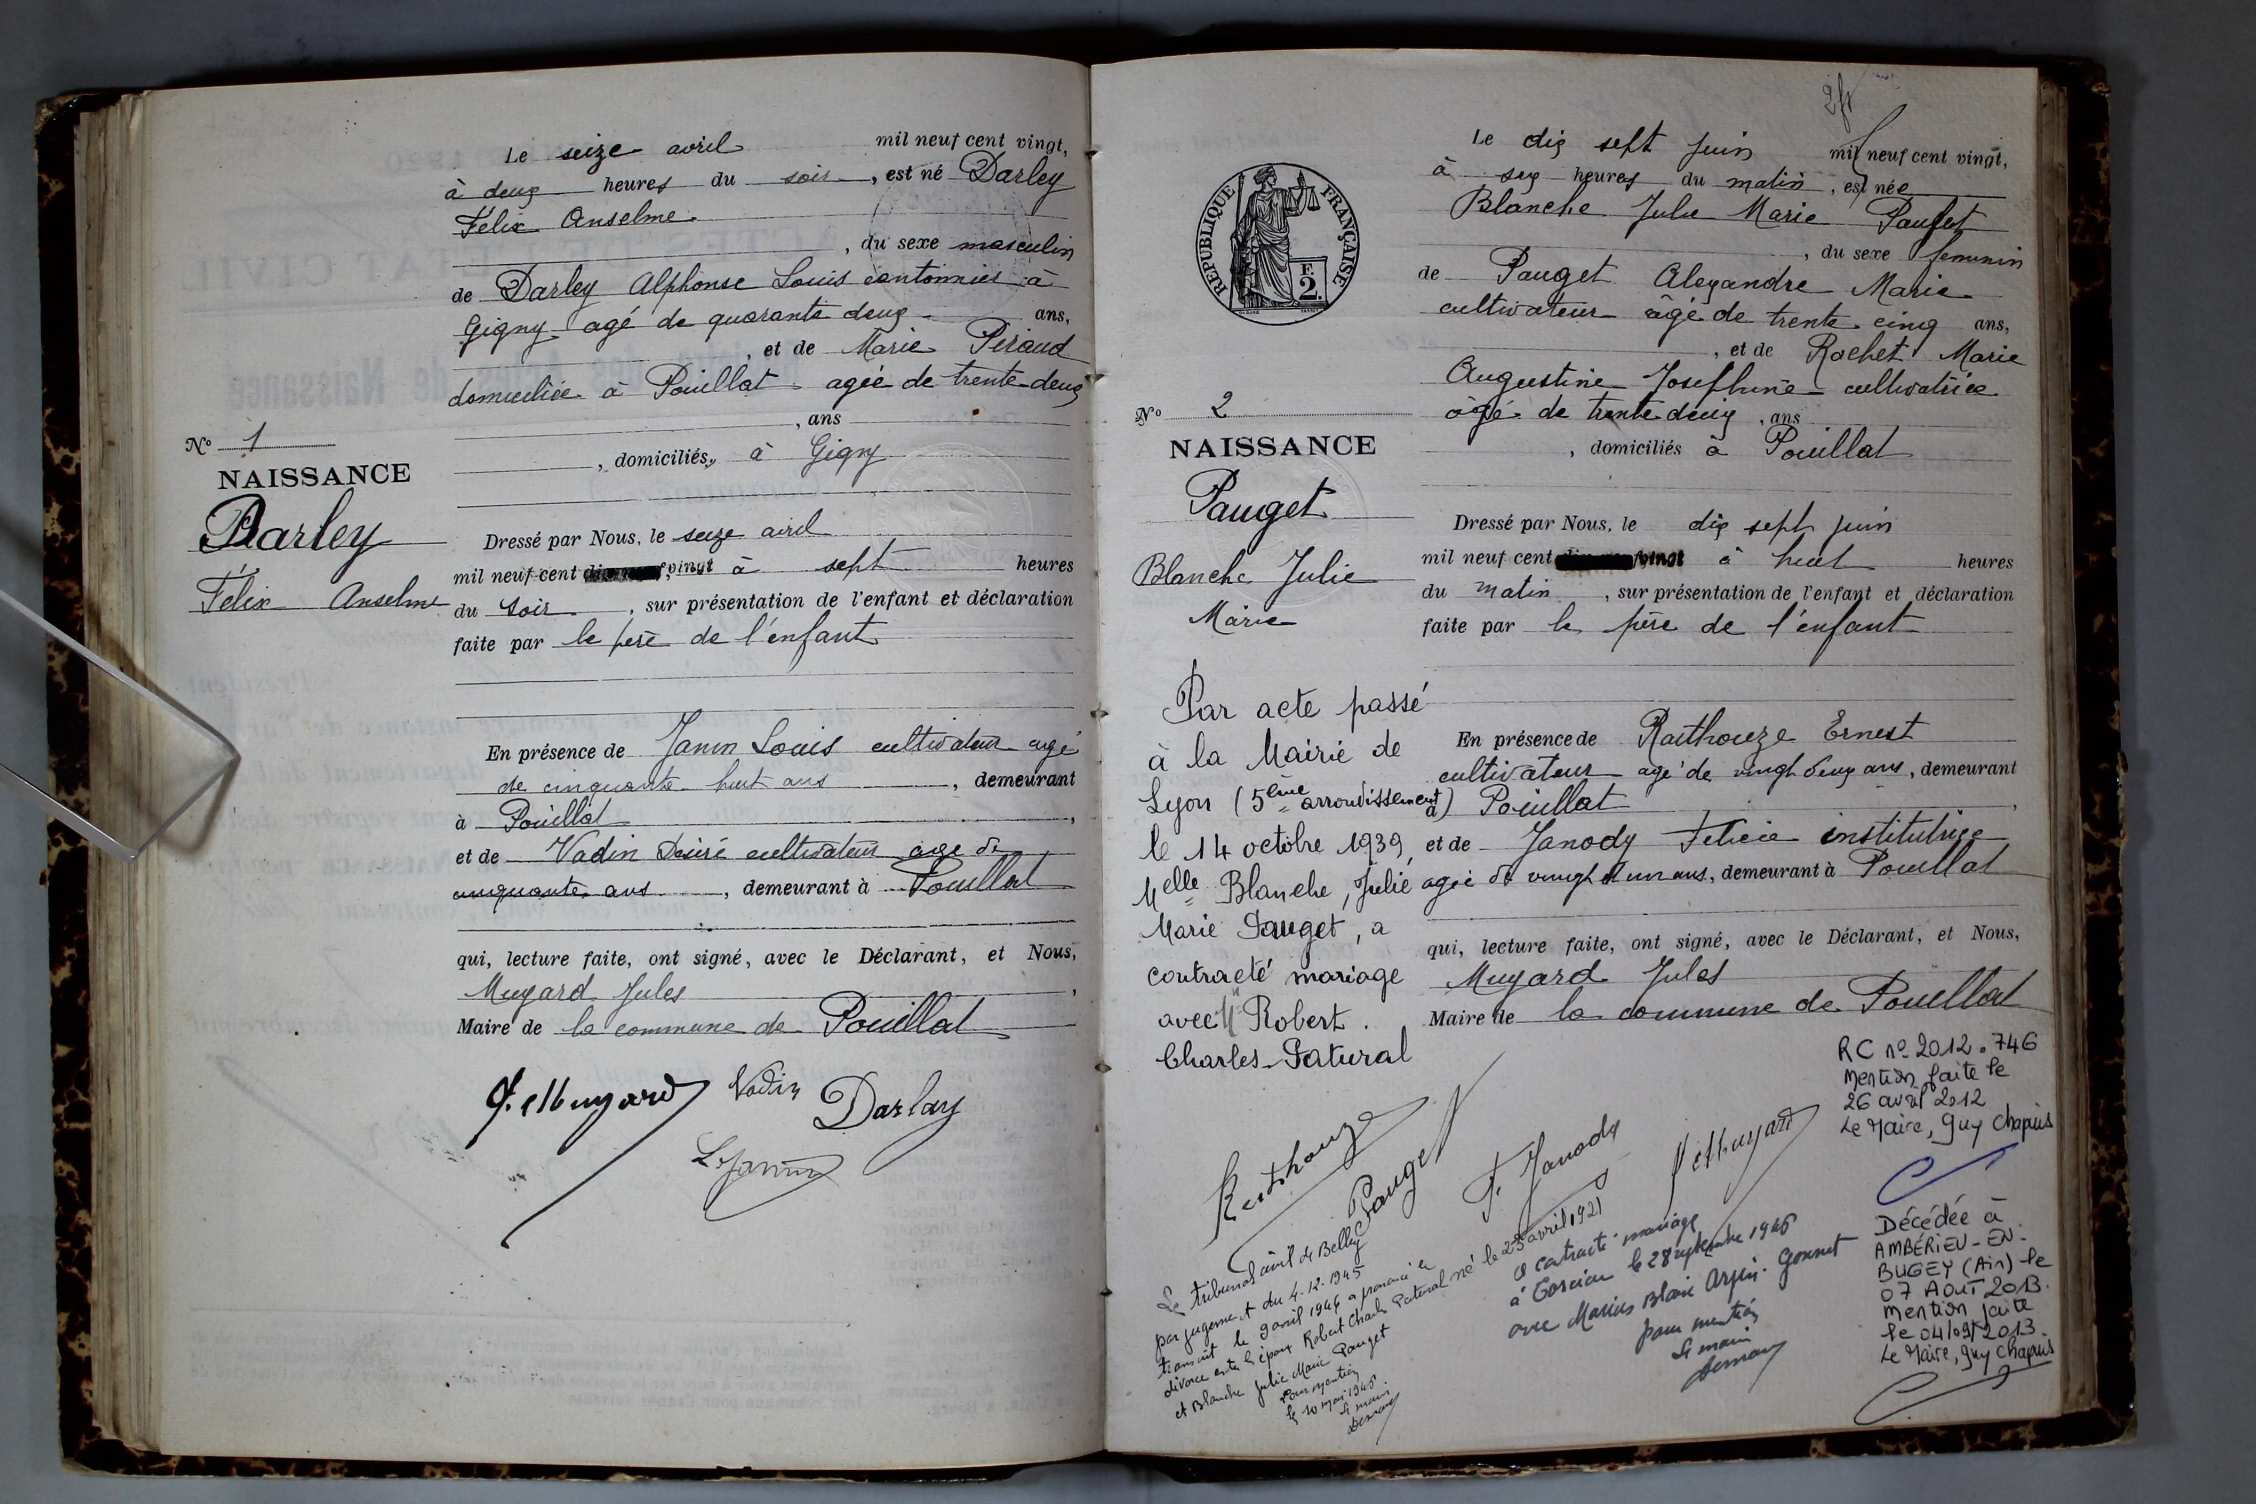 Le seize avril mil neuf cent vingt,
à deux heures du soir, est né Darley
Félix Anselme
, du sexe masculin
de Darley Alphonse Louis cantonnier à
Gigny agé de quarante deux ans,
, et de Marie Péraud
domiciliée à Pouillat agée de trente-deux
, ans
, domiciliés, à Gigny
Nº 1
NAISSANCE
Darley
Félix Anselme
Dressé par Nous, le seize avril
mil neuf cent vingt à sept heures
du soir, sur présentation de l'enfant et déclaration
faite par le père de l'enfant
En présence de Janin Louis cultivateur agé
de cinquante huit ans, demeurant
à Pouillat,
et de Vadin Désiré cultivateur age de
cinquante ans, demeurant à Pouillat
qui, lecture faite, ont signé, avec le Déclarant, et Nous,
Muyard Jules,
Maire de la commune de Pouillat
J. Muyard Vadin Darlay
L. Janin
2f
Le dix sept juin mil neuf cent vingt,
à six heures du matin, est née
Blanche Julie Marie Pauget
, du sexe feminin
de Pauget Alexandre Marie
cultivateur âgé de trente cinq ans,
, et de Rochet Marie
Augustine Josephine cultivatrice
âgé de trente deux, ans
, domiciliés à Pouillat
RÉPUBLIQUE FRANÇAISE
F.
2.
Nº 2
NAISSANCE
Pauget
Blanche Julie
Marie
Dressé par Nous, le dix sept juin
mil neuf cent vingt à huit heures
du matin, sur présentation de l'enfant et déclaration
faite par le père de l'enfant
En présence de Raithouze Ernest
cultivateur agé de vingt deux ans, demeurant
à Pouillat,
et de Janody Felicie institutrice
agée de vingt et un ans, demeurant à Pouillat
qui, lecture faite, ont signé, avec le Déclarant, et Nous,
Muyard Jules
Maire de la commune de Pouillat
Par acte passé
à la Mairie de
Lyon (5ème arrondissement)
le 14 octobre 1939,
Melle Blanche, Julie
Marie Pauget, a
contracté mariage
avec Mr Robert.
Charles Patural
Pauget
F. Janody
J. Muyard
Le tribunal civil de Belley
par jugement du 4.12.1945
transcrit le 9 avril 1946 a prononcé le
divorce entre les époux Robert Charles Patural né le 23 avril 1921
et Blanche Julie Marie Pauget
Pour mention
le 10 mai 1946
le maire
a contracté mariage
à Torcieu le 28 septembre 1946
avec Marius Blaise Arpin-Gonnet
pour mention
le maire
RC nº 2012.746
Mention faite le
26 avril 2012
Le Maire, Guy Chapuis
Décédée à
AMBÉRIEU-EN-
BUGEY (Ain) le
07 AOUT 2013.
Mention faite
le 04/09/2013.
Le Maire, Guy Chapuis